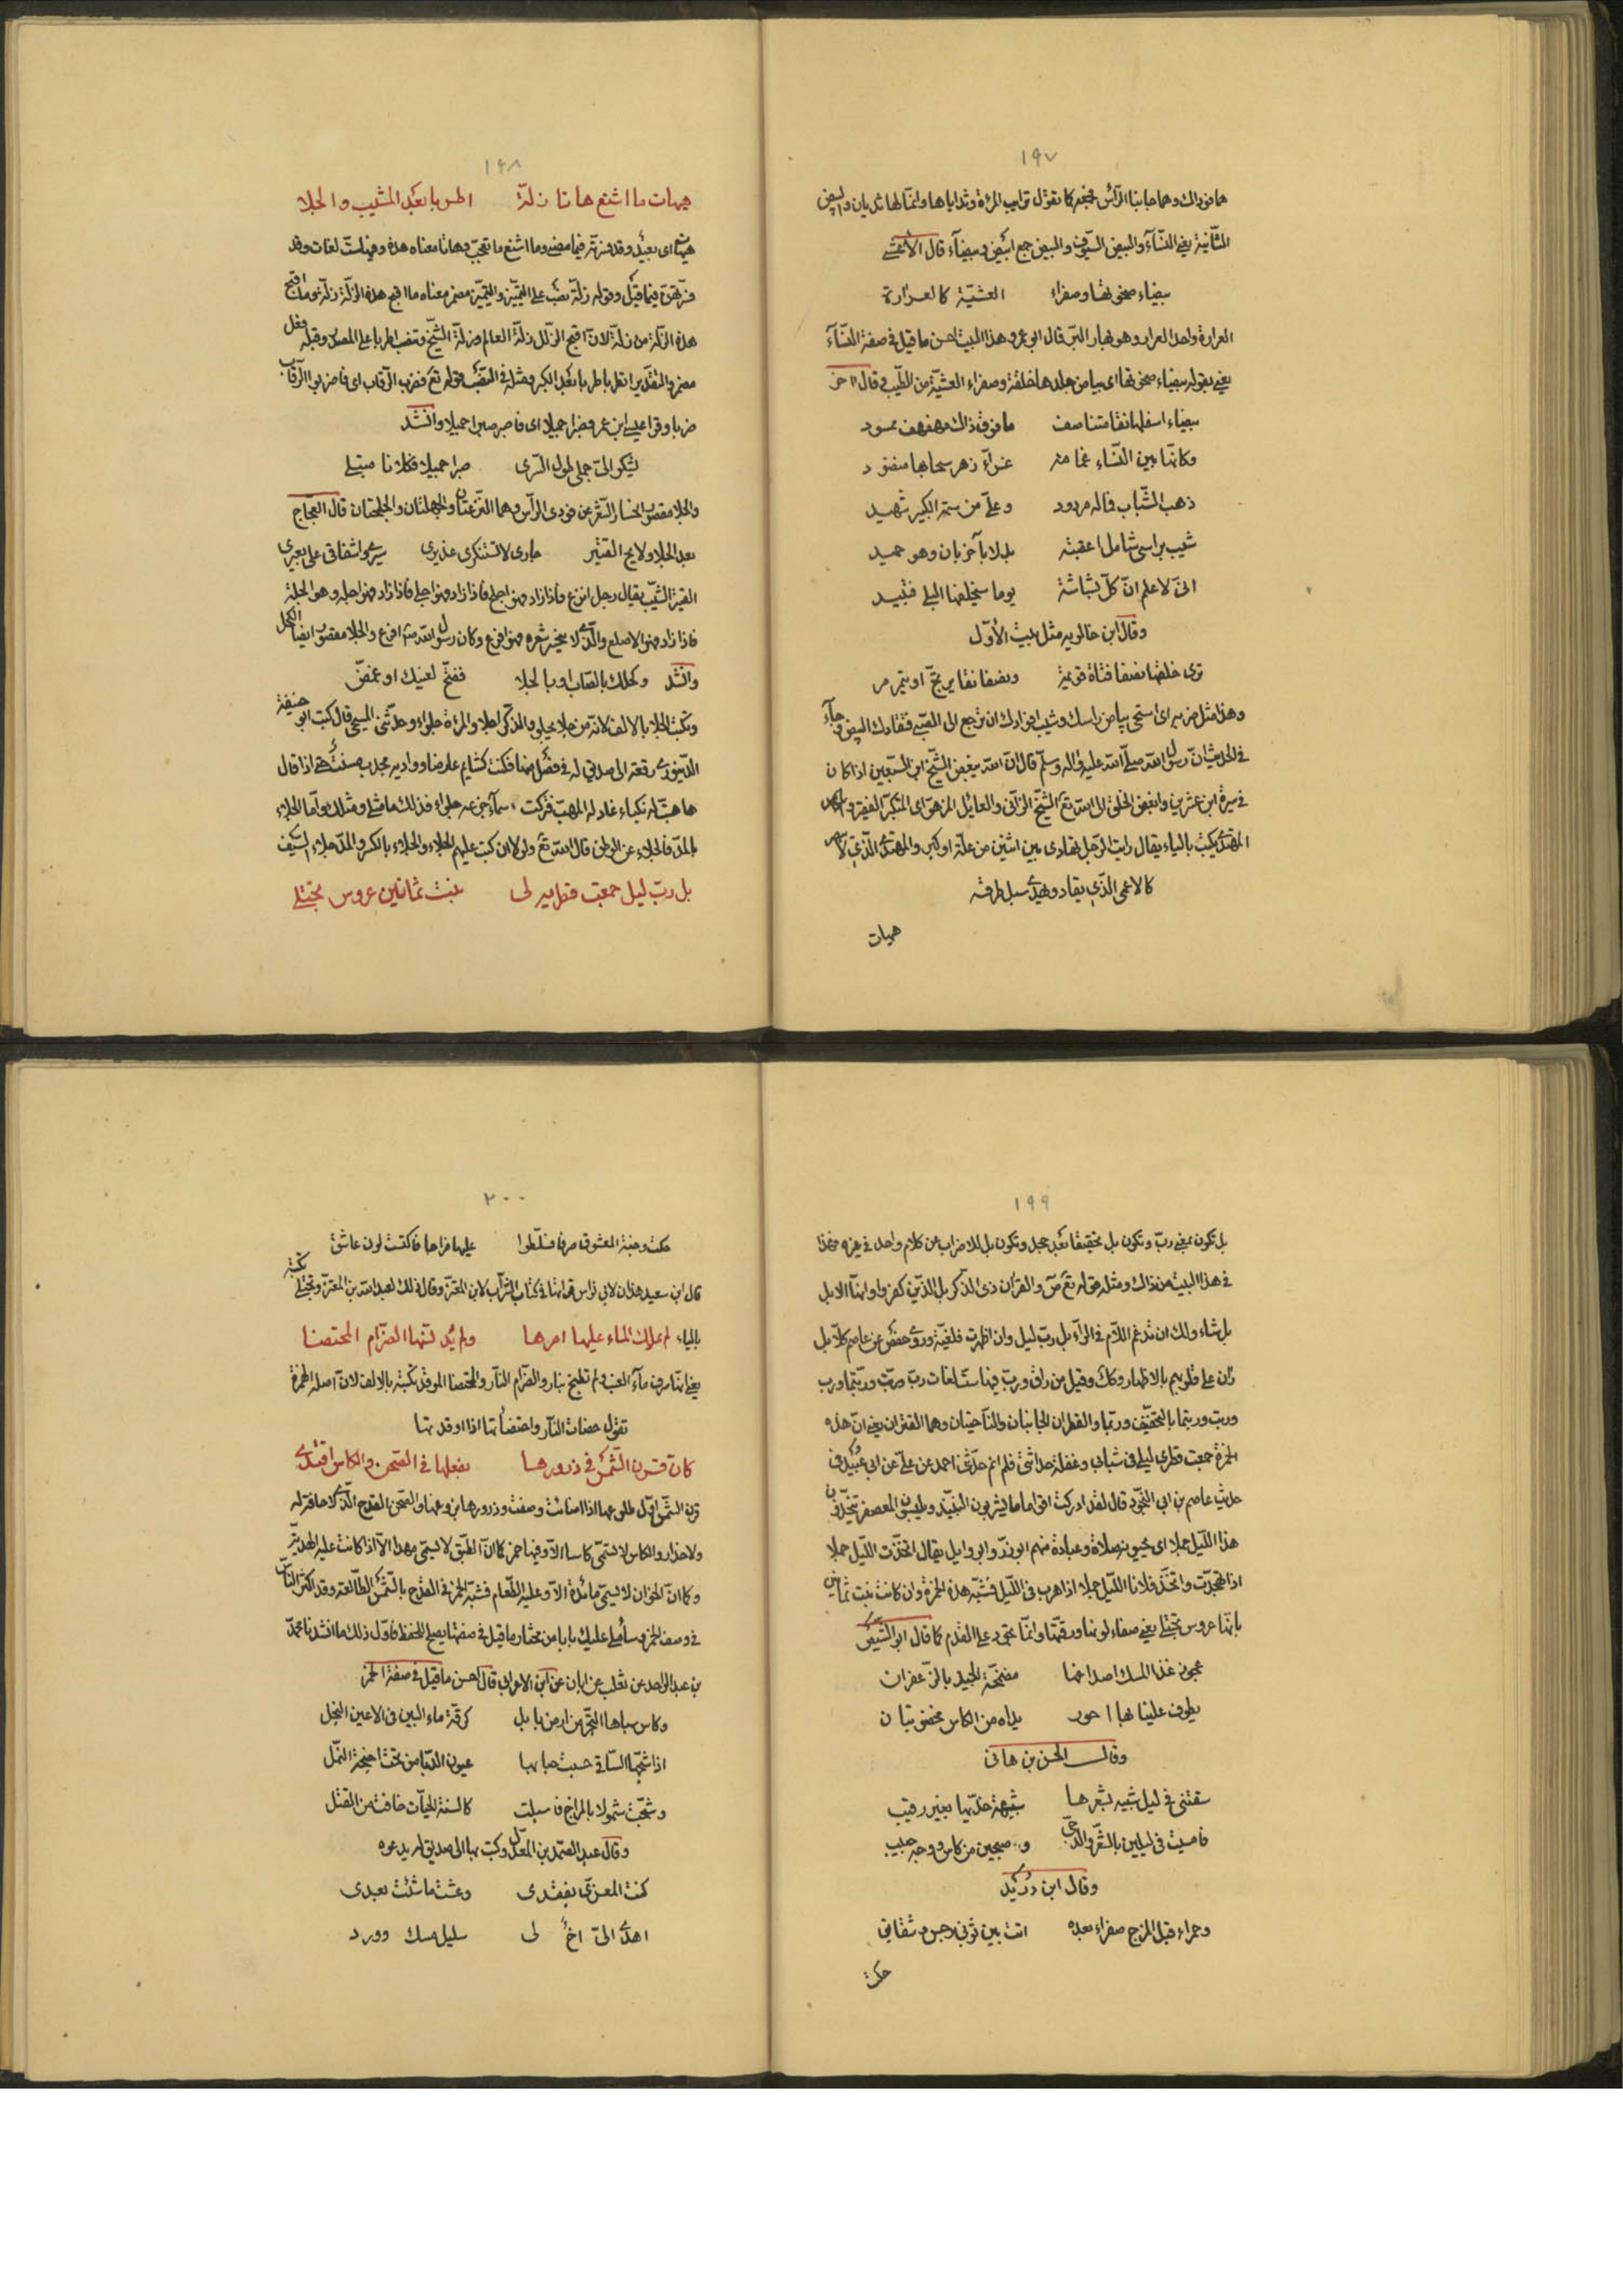 ١٩٧
هما فوداك وهما جانبا الرّأس فجمع كما تقول ترايب المرأة وثداياها وانّما لها ثديان والبيض
الثّانية يعني النّسآء والبيض السّيوف والبيض جمع ابيض وبيضآء قال الأعشى
بيضاء ضحوتها وصفراء العشيّة كالعرارة
العرارة واحد العرار وهو بهار البرّ قال ابو عمرو هذا البيت احسن ما قيل في صفة النّسآء
يعني بقوله بيضاء ضحوتها اى بياض جلدها خلقة وصفراء العشيّة من الطّيب وقال اخر
بيضاء اسفلها نقا متناصف ما فوق ذاك مهفهف ممسود
وكانّها بين النّساء غمامة غرّآء زهر سحابها منضود
ذهب الشّباب فما له مردود وعلىّ من سمة الكبير شهيد
شيب براسى شامل اعقبته بدلا بآخر بان وهو حميد
انّى لاعلم انّ كلّ بشاشة يوما سيخلفها البلى فتبيد
وقال ابن خالويه مثل بيت الأوّل
ترى خلقها نصفا قناة قويمة ونصفا نقا يرتجّ او يتمرمر
وهذا مثل ضربه اى استحى بياض راسك وشيب فوادك ان ترجع الى الصّبى فتقادك البيض وجآء
في الحديث انّ رسول الله صلّى الله عليه واله وسلّم قال انّ الله يبغض الشّيخ ابن السّبعين اذا كان
في سيرة ابن عشرين وابغض الخلق الى الله تع الشّيخ الزّانى والعائل المزهوّ اى المتكبّر الفقير و
المهتدى يكتب بالياء يقال رايت الرّجل يهادى بين اثنين من علّة او كبر والمهتدى الّذي لا
كالاعمى الّذي يقاد ويهدى سبل طرقه
هيهات
١٩٨
هيهات ما اشنع هاتا زلّة اطربا بعد المشيب والجلا
هيهات اى بعيد وقد فسرته فيما مضى وما اشنع ما تعجّب وهاتا معناه هذه وفيها ستّ لغات وقد
فسّرتهنّ فيما قبل وقوله زلّة نصب على التّميّز والتميّز مضمر معناه ما اقبح هذه الزّلة زلّة وما اقبح
هذه الزّلة من زلّة لانّ اقبح الزّلل زلّة العالم وزلّة الشّيخ ونصب اطربا على المصدر وقبله فعل
مضمر والتقدير اتطرب اطربا بعد الكبر ومثله في النّصب قوله تع فضرب الرّقاب اى فاضربوا الرّقاب
ضربا وقرا عيسى ابن عمر فصبرا جميلا اى فاصبر صبرا جميلا وانشد
يشكو الىّ جملى طول السّرى صبرا جميلا فكلانا مبتلى
والجلا مقصور انحسار الشّعر عن فودى الرّأس وهما النّزعتان والجبهتان والجلحتان قال العجّاج
بعد الجلا ولايح القتير جارى لا تستنكرى عذيرى سيرى واشفاقى على بعيرى
القتير الشّيب يقال رجل انزع فاذا زاد فهو اجلح فاذا زاد فهو اجلى فاذا زاد فهو اجله وهو الجلة
فاذا زاد فهو الاصلع والّذى لا ينحسر شعره فهو افرع وكان رسول الله ص افرع والجلا مقصور ايضا الكحل
وانشد وكحلك بالصّاب او بالجلا ففتّح لعينك او غمّض
وتكتب الجلا بالالف لانّه من جلا يجلو والمذكّر اجلا والمرأة جلواء وحدّثنى المسيحى قال كتب ابو حنيفة
الدّينورى رقعة الى صديق له في فصل منها فكنت كشايم عارضا ووادبه مجدب يستغيثه حتى اذا قال
هاهتّ له نكباء غادله المهبّ فتركت سمآء من غير جلواء فذلك ما مثلى ومثلك وامّا الجلاء
بالمدّ فالجلاء عن الوطن قال الله تع ولولا ان كتب عليهم الجلاء والجلاء بالكسر والمدّ جلاء السّيف
بل ربّ ليل جمعت قطريه لى بنت ثمانين عروس تجتلى
١٩٩
بل تكون بمعنى ربّ وتكون بل تحقيقا بعد جحد وتكون بل للاضراب عن كلام واخذ في غيره فهذا
في هذا البيت من ذاك ومثله قوله تع صّ والقرآن ذى الذّكر بل الّذين كفروا وانّما الا بل
بل شاء ولك ان تدغم اللّام في الرّآء بل ربّ ليل وان اظهرت فلغيّة وروى حفص عن عاصم كلّا بل
ران على قلوبهم بالاظهار وكك وقيل من راق وربّ فيها ستّ لغات ربّ وربّت وربّما ورب
وربت وربتما بالتّخفيف وربّما والقطران الجانبان والنّاحيتان وهما القتران يعني انّ هذه
الخمرة جمعت قطرى ليلى في شبابى وغفلة حداثتى فلم انم حدّثنى احمد عن علىّ عن ابى عبيد في
حديث عاصم بن ابى النّجود قال لقد ادركت اقواما ما يشربون النّبيذ ويلبسون المعصفر يتّخذون
هذا اللّيل جملا اى يحيونه صلاة وعبادة منهم ابو زرّ وابو وايل يقال اتّخذت اللّيل جملا
اذا تهجّدت واتّخذ فلانا اللّيل جملا اذا هرب فى اللّيل فشبّه هذه الخمرة وان كانت بنت ثمانين
بانّها عروس تجتلى يعني صفاء لونها ورقّتها وانّما تجود على القدم كما قال ابو الشّيص
عجوز غذا المسك اصداغها مضمّخة الجيد بالزّعفران
يطوف علينا بها احور يداه من الكاس مخضوبتان
وقال الحسن بن هانى
سقتنى في ليل شبيه بشعرها شبيهة خدّيها بغير رقيب
فامسيت فى ليلين بالشّعر والدّجى وصبحين من كاس ووجه حبيب
وقال ابن دريد
وحمراء قبل المزج صفراء بعده اتت بين ثوبى نرجس وشقايق
حكت
٢٠٠
حكت وجنة المعشوق صرفا فسلّطوا عليها مزاجا فاكتست لون عاشق
قال ابن سعيد هذان لابى نواس قراتها في كتاب الشّراب لابن المعتزّ وقال ذلك لعبد الله بن المعتزّ وتجتلى تكتبه
بالياء لم يملك الماء عليها امرها ولم يدنّسها الضّرام المحتضا
يعني انّها صرف مآء العنب ولم تطبخ بنار والضّرام النّار والمحتضا الموقد تكتبه بالالف لانّ اصله الهمزة
تقول حضات النّار واحتضأتها اذا اوقدتها
كانّ قرن الشّمس في ذرورها بفعلها في الصّحن والكاس اقتدى
قرن الشّمس اوّل طلوعها اذا اضائت وصفت وذرورها بزوغها والصّحن القدح الّذى لا حافة له
ولا جدار والكاس لا تسمّى كاسا الاّ وفيها خمر كما انّ الطّبق لا يسمّى مهدا الاّ اذا كانت عليه الهديّة
وكما انّ الخوان لا يسمّى مائدة الاّ وعليه الطّعام فشبّه الخمر في القدح بالشّمس الطّالعة وقد اكثر النّاس
في وصف الخمر وسأملى عليك بابا من مختار ما قيل في صفتها يصلح للحفظ فاوّل ذلك ما انشدنا محمّد
بن عبد الواحد عن ثعلب عن ابان عن ابن الاعرابى قال احسن ما قيل في صفة الخمر
وكاس سباها التّجر من ارض بابل كرقّة ماء البين فى الاعين النجل
اذا شجّها السّاقى حسبت حبابها عيون الدّبا من تحت اجنحة النّمل
وشجّت شمولا بالمزاج فاسبلت كالسنة الحيّات خافت من القتل
وقال عبد الصّمد بن المعذّل وكتب بها الى صديق له يدعوه
كنت المعزّى بفقدى وعشت ما شئت بعدى
اهدى الىّ اخ لى سليل مسك وورد